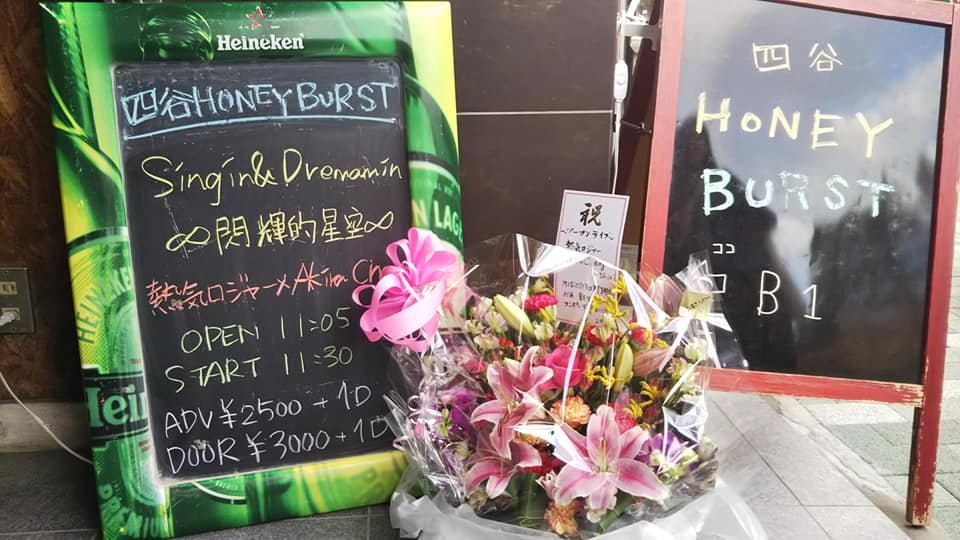 Heineken
四谷HONEY BURST
Singin&Dremamin
∞閃輝的星空∞
熱気ロジャー×Akira
OPEN 11:05
START 11:30
ADV ¥2500 + 1D
DOOR ¥3000 + 1D
祝
熱気ロジャー
四谷
HONEY
BURST
ココ
B1